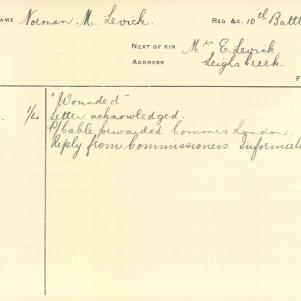 NAME Norman. M. Levick.
REG. &C. 10th Battl
NEXT OF KIN Mrs E. Levick.
ADDRESS Leighs Creek.
F
"Wounded"
1/40 Letter acknowledged.
P/Cable forwarded Commrs London.
Reply from Commissioners. Informat